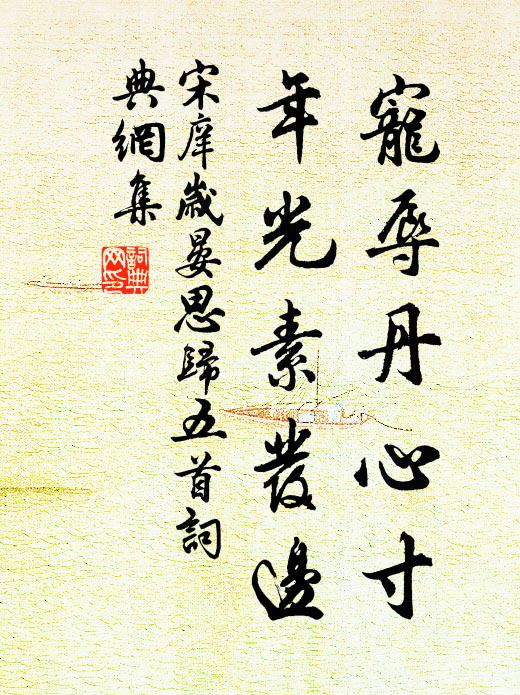 寵辱丹心寸
年光素髮邊
宋庠歲晏思歸五首詞
典網集
詞典
網印